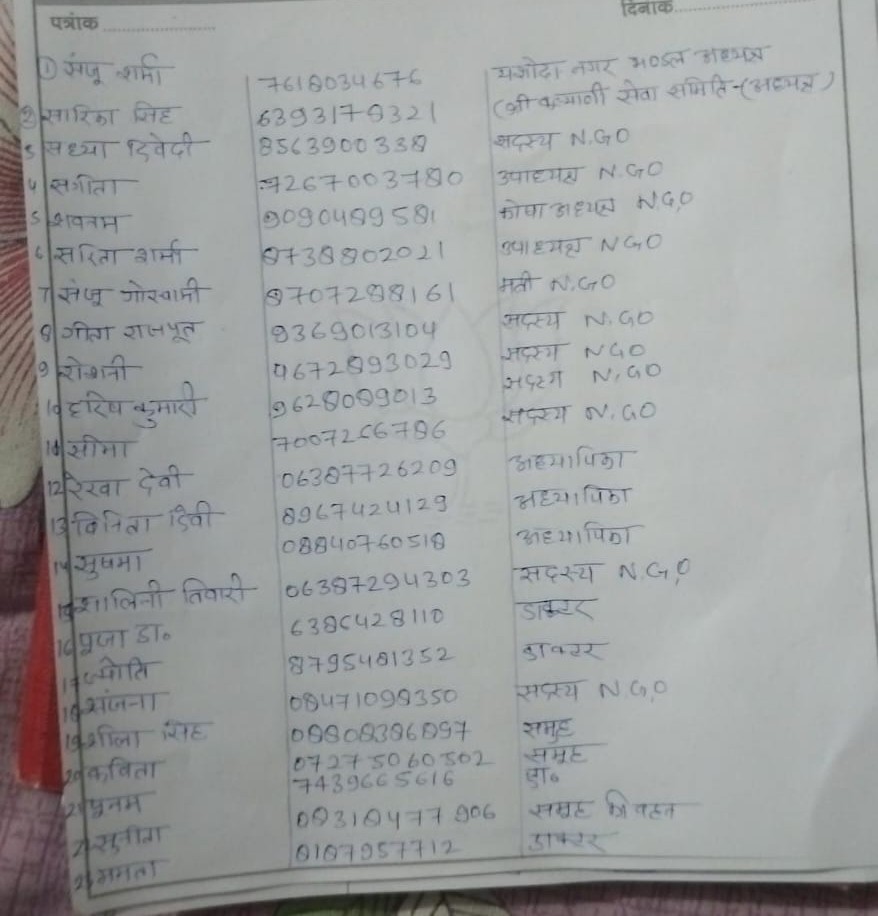 पत्रांक .................... दिनांक....................
① संजू शर्मा 7618034676 यशोदा नगर मण्डल अध्यक्ष
2 सारिका सिंह 6393178321 (श्री कल्याणी सेवा समिति-(अध्यक्ष)
3 सध्या द्विवेदी 8563900338 सदस्य N.GO
4 संगीता 7267003780 उपाध्यक्ष N.GO
5 शबनम 9090489581 कोषाअध्यक्ष N.G.O
6 सरिता शर्मा 8738802021 उपाध्यक्ष NGO
7 संजू गोस्वामी 8707288161 मंत्री N.GO
8 गीता राजपूत 9369013104 सदस्य N.GO
9 रोशनी 9672893029 सदस्य NGO
10 हरिष कुमारी 9628089013 सदस्य N.GO
11 सीमा 7007266786 सदस्य N.GO
12 रेखा देवी 06387726209 अध्यापिका
13 विनिता देवी 8967424129 अध्यापिका
14 सुषमा 08840760518 अध्यापिका
15 शालिनी तिवारी 06387294303 सदस्य N.G.O
16 पूजा डा० 6386428110 डाक्टर
17 ज्योति 8795481352 डाक्टर
18 संजना 08471098350 सदस्य N.G.O
19 शीला सिंह 08808386897 समुह
20 कविता 07275060502 समुह
7439665616 डा०
21 पूनम 08318477906 समुह
22 सुनीता 8187957712 डाक्टर
23 ममता